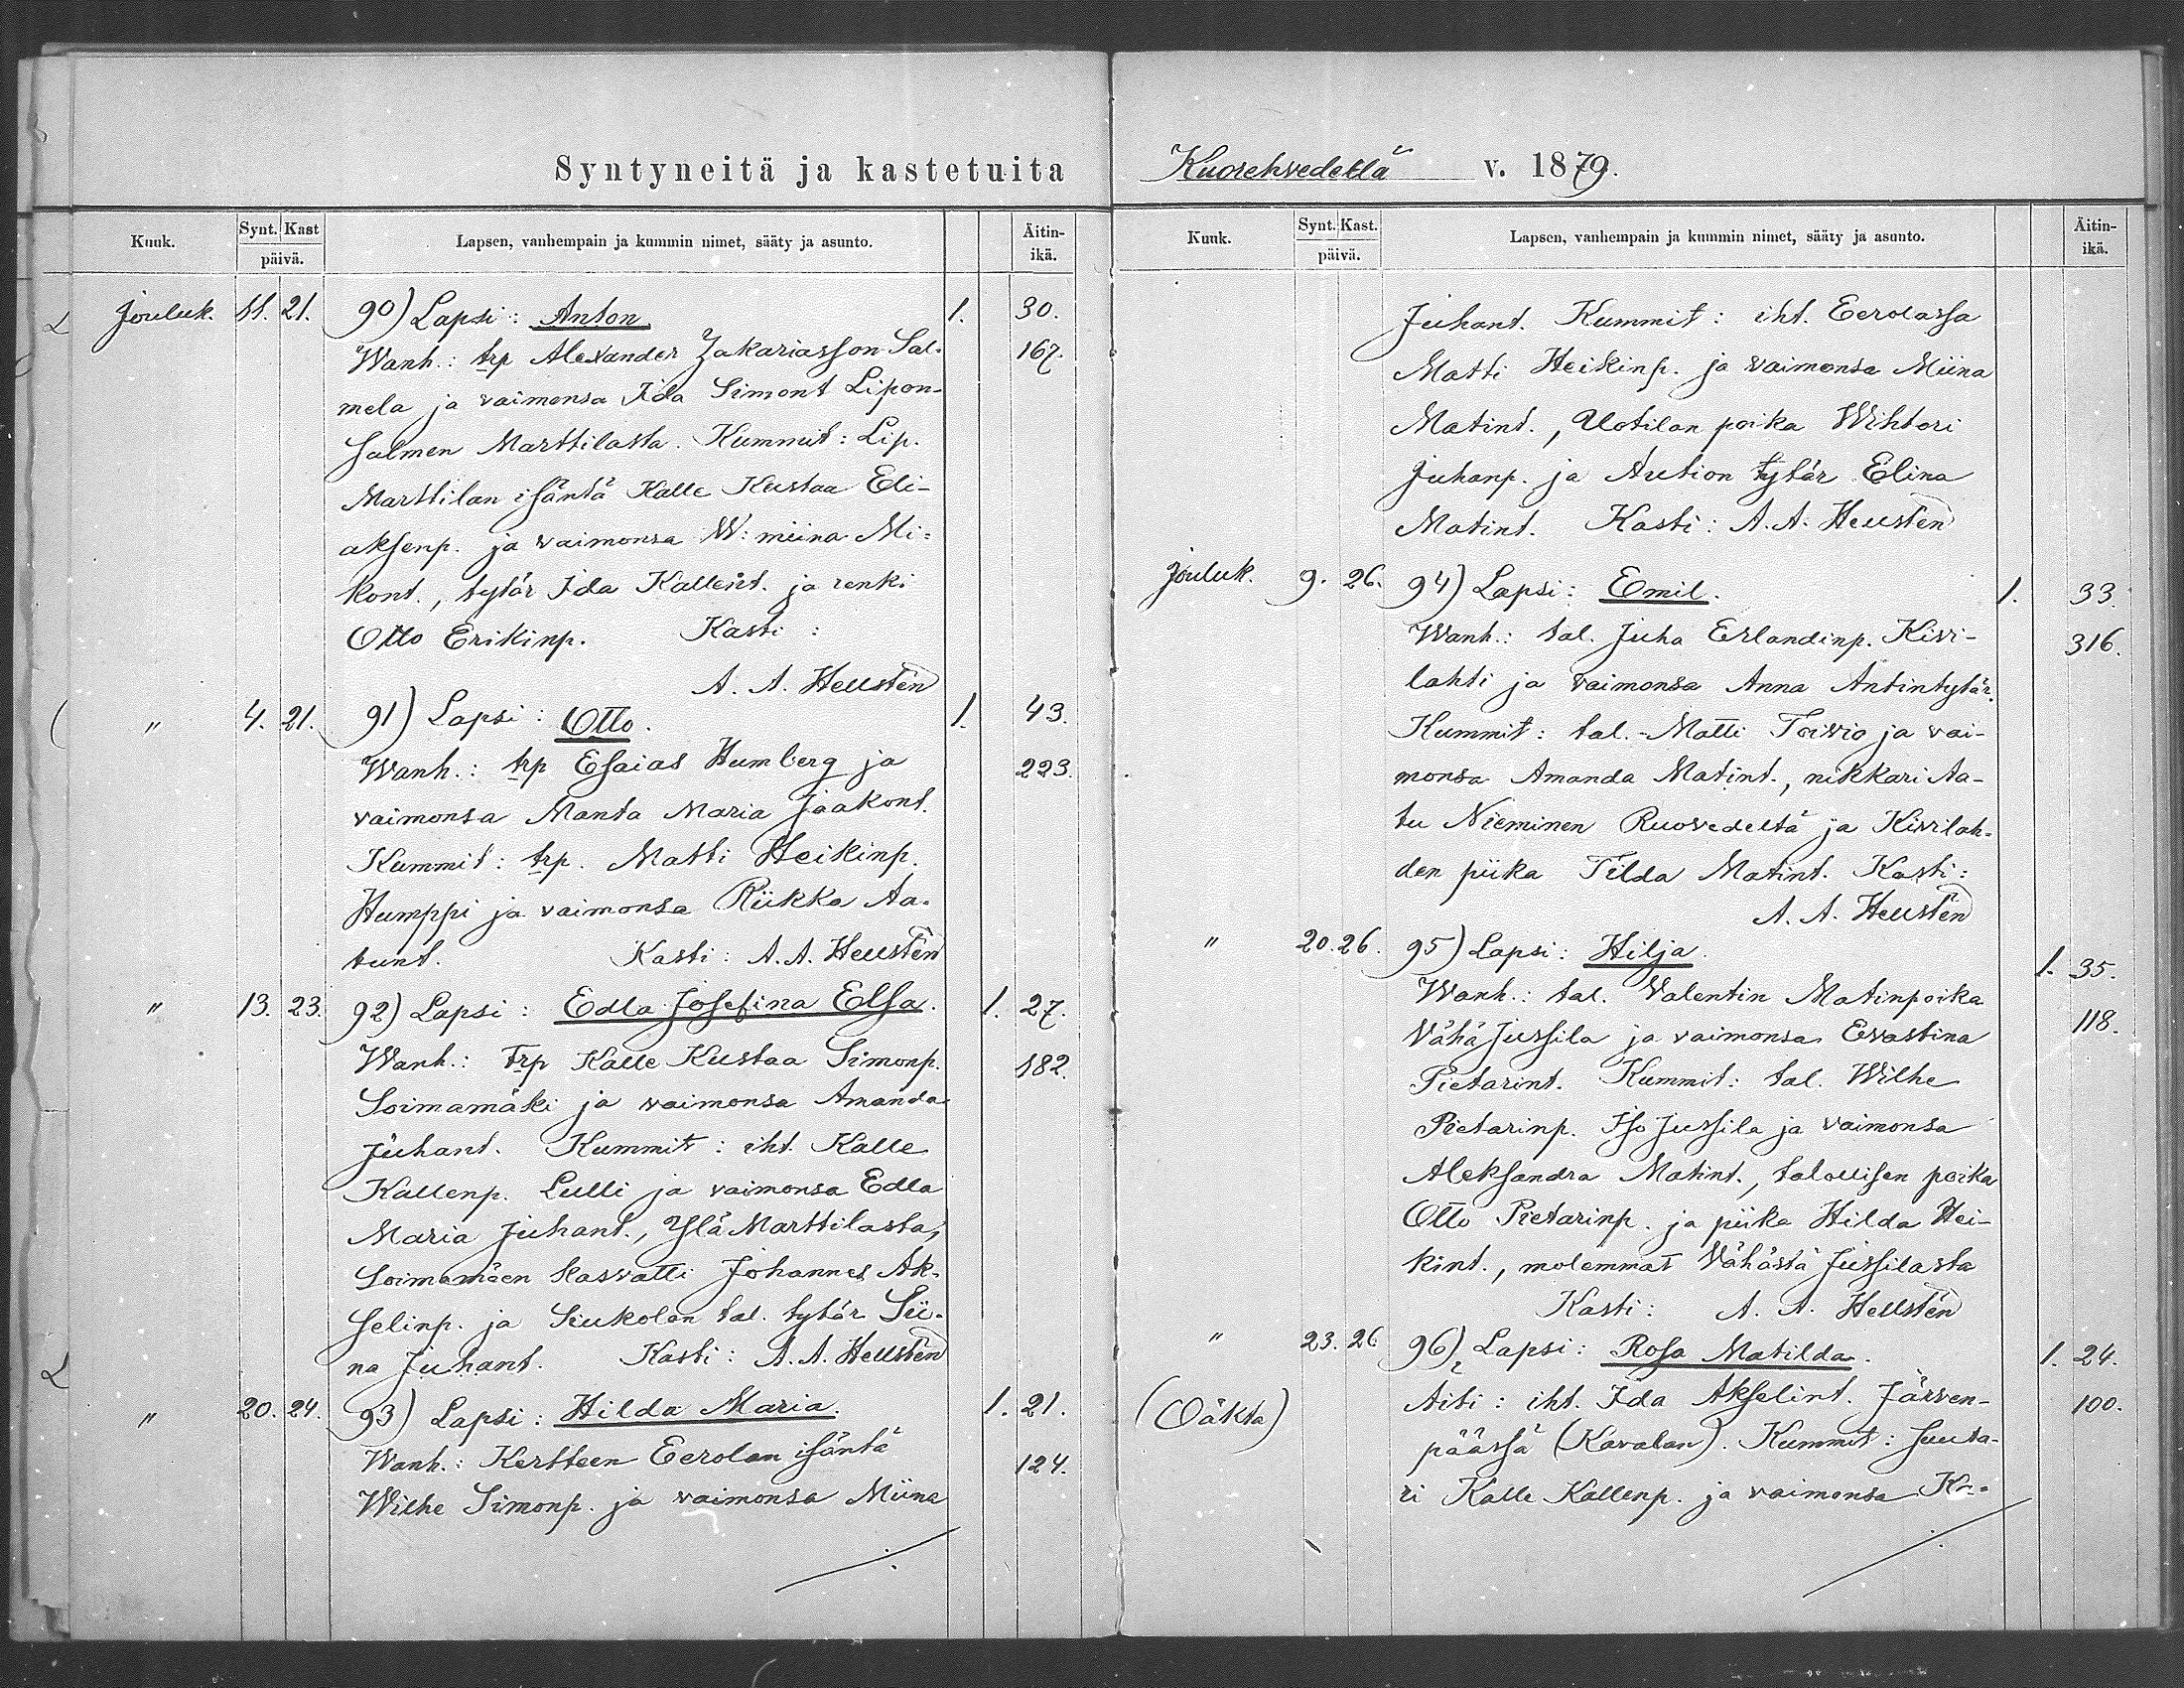 Syntyneitä ja kastetuita
Kuuk. Synt. Kast päivä. Lapsen, vanhempain ja kummin nimet, sääty ja asunto. Äitin-ikä.
Jouluk. 11. 21. 90) Lapsi: Anton 1. 30.
Wanh.: trp Alexander Zakariasson Sal- 167.
mela ja vaimonsa Ida Simont Lipon-
salmen Marttilasta. Kummit: Lip.
Marttilan isäntä Kalle Kustaa Eli-
aksenp. ja vaimonsa W:miina Mi-
kont., tytär Ida Kallent. ja renki
Otto Erikinp. Kasti:
A. A. Hellstén
" 4. 21. 91) Lapsi: Otto. 1. 43.
Wanh.: trp Esaias Humberg ja 223.
vaimonsa Manta Maria Jaakont.
Kummit: trp. Matti Heikinp.
Humppi ja vaimonsa Riikka Aa-
tunt. Kasti: A. A. Hellstén
" 13. 23. 92) Lapsi: Edla Josefina Elsa. 1. 27.
Wanh.: Trp Kalle Kustaa Simonp. 182.
Soimamäki ja vaimonsa Amanda
Juhant. Kummit: iht. Kalle
Kallenp. Lulli ja vaimonsa Edla
Maria Juhant., Ylä Marttilasta,
Soimamäen kasvatti Johannes Ak-
selinp. ja Siukolan tal. tytär Sii-
na Juhant. Kasti: A. A. Hellstén
" 20. 24. 93) Lapsi: Hilda Maria. 1. 21.
Wanh.: Kertteen Eerolan isäntä 124.
Wilhe Simonp. ja vaimonsa Miina
Kuorehvedellä v. 1879.
Kuuk. Synt. Kast. päivä. Lapsen, vanhempain ja kummin nimet, sääty ja asunto. Äitin-ikä.
Juhant. Kummit: iht. Eerolassa
Matti Heikinp. ja vaimonsa Miina
Matint., Uotilan poika Wihtori
Juhanp. ja Aution tytär Elina
Matint. Kasti: A. A. Hellstén
Jouluk. 9. 26. 94) Lapsi: Emil. 1. 33.
Wanh.: tal. Juha Erlandinp. Kivi- 316.
lahti ja vaimonsa Anna Antintytär.
Kummit: tal. Matti Toivio ja vai-
monsa Amanda Matint., nikkari Aa-
tu Nieminen Ruovedeltä ja Kivilah-
den piika Tilda Matint. Kasti:
A. A. Hellstén
" 20. 26. 95) Lapsi: Hilja. 1. 35.
Wanh.: tal. Valentin Matinpoika 118.
Vähä Jussila ja vaimonsa Evastina
Pietarint. Kummit: tal. Wilhe
Pietarinp. Iso Jussila ja vaimonsa
Aleksandra Matint., talollisen poika
Otto Pietarinp. ja piika Hilda Hei-
kint., molemmat Vähästä Jussilasta
Kasti: A. A. Hellstén
" 23. 26. 96) Lapsi: Rosa Matilda. 1. 24.
(Oäkta) Äiti: iht. Ida Akselint. Järven- 100.
päässä (Kavalan). Kummit: suuta-
ri Kalle Kallenp. ja vaimonsa